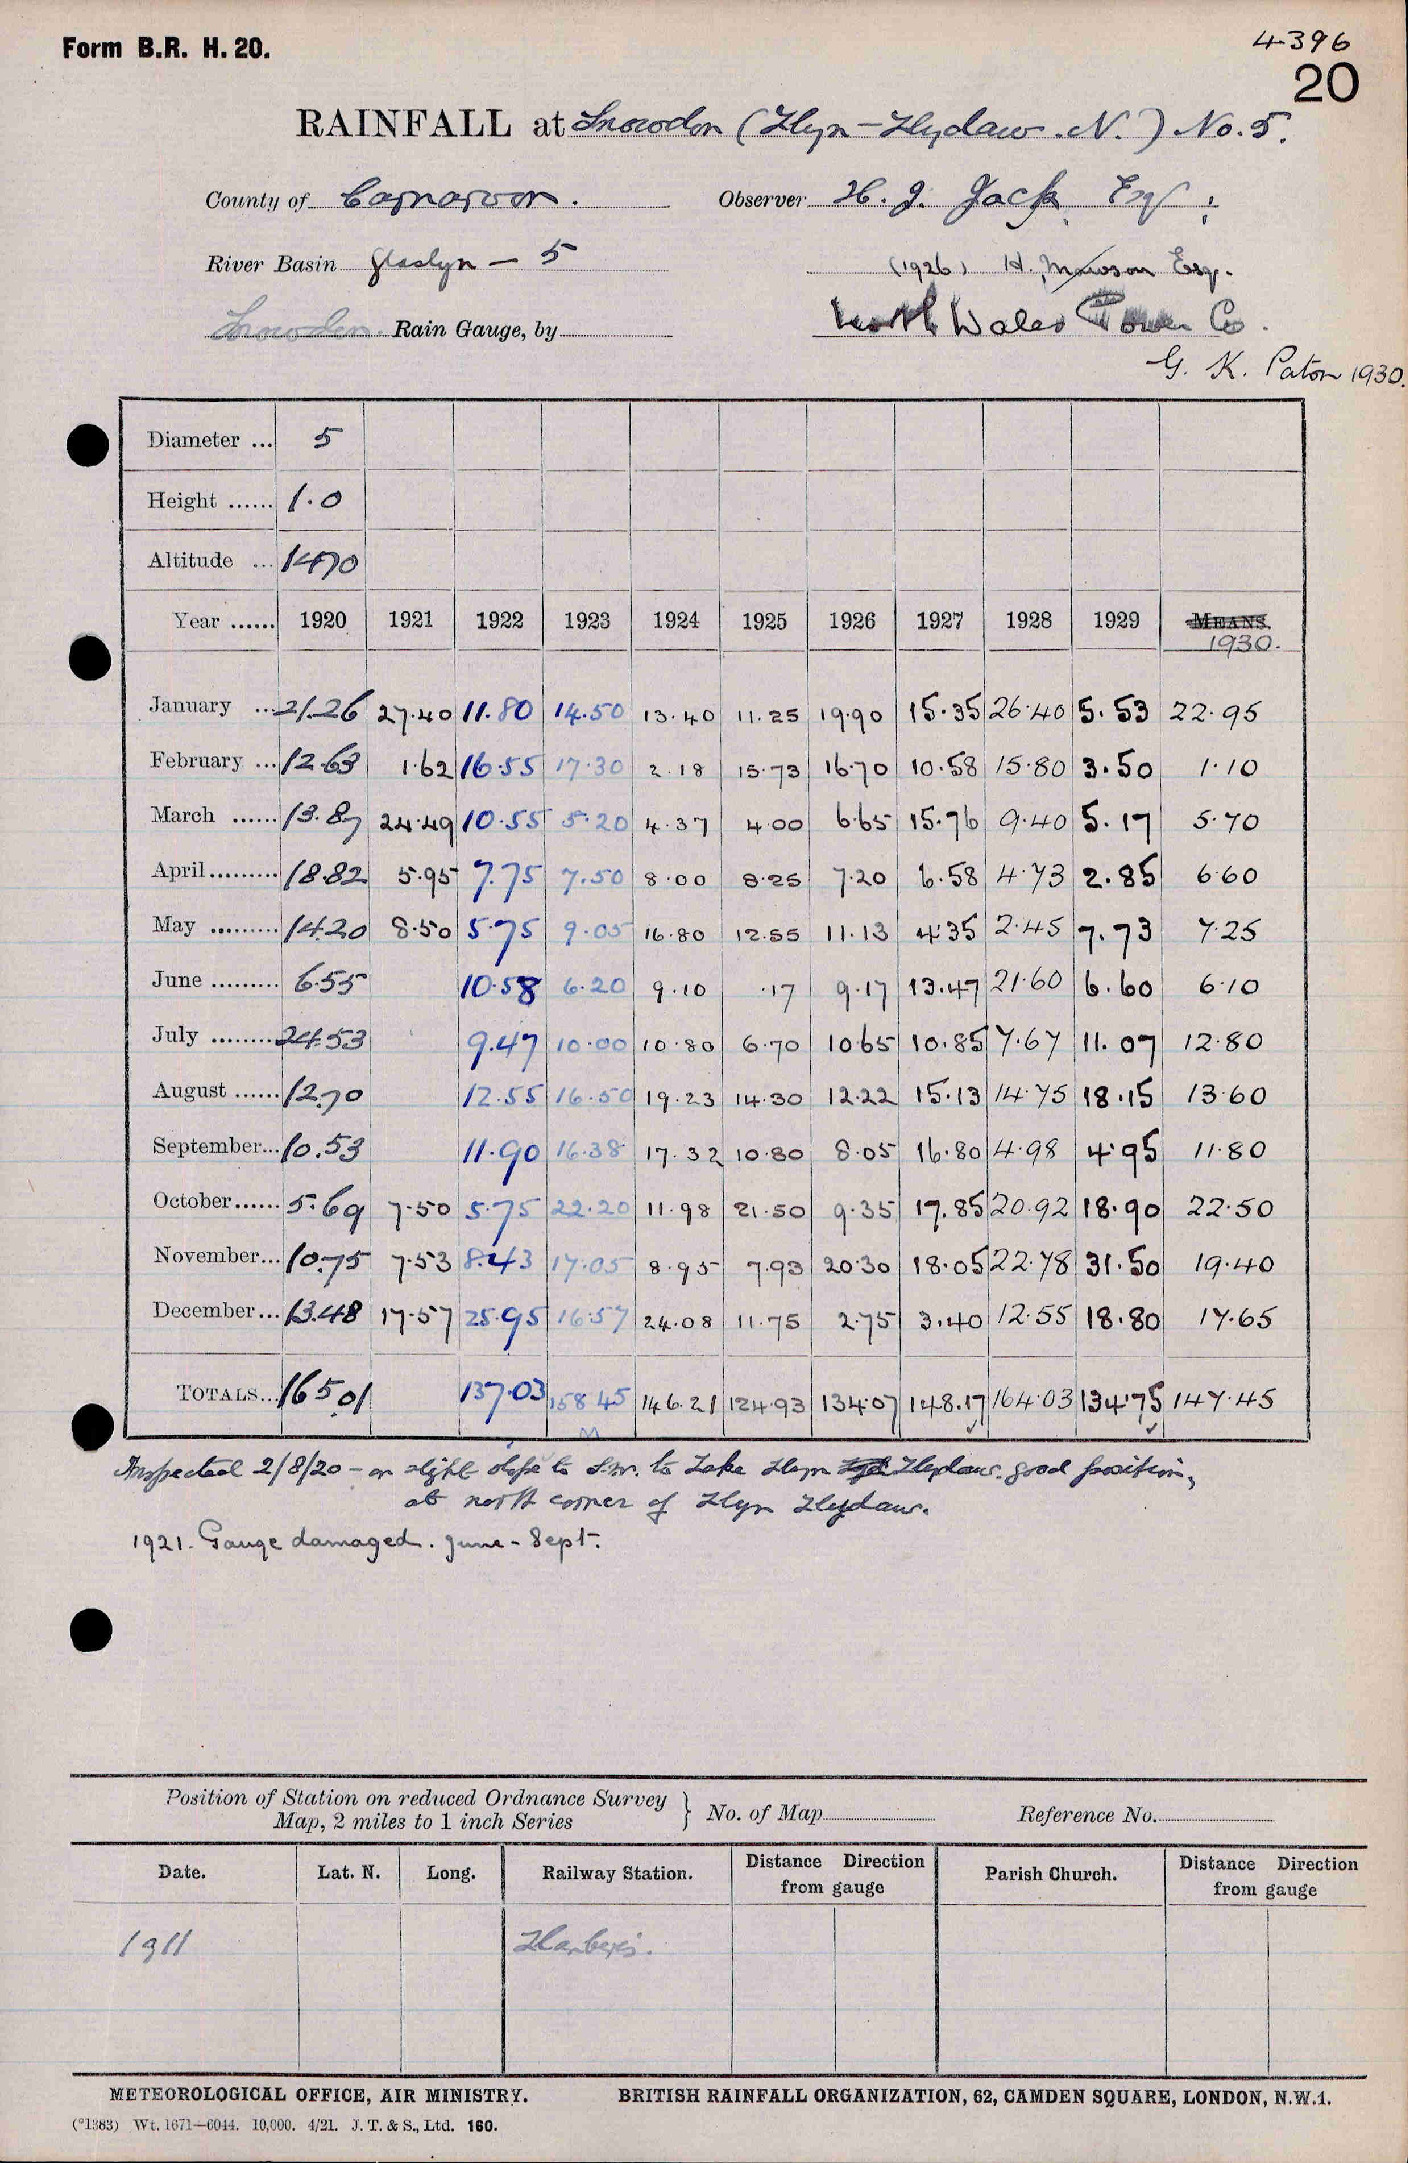 Form B.R. H. 20.
4396
20
RAINFALL at Snowdon (Llyn-Llydaw. N.) No. 5.
County of Carnarvon. Observer H. J. Jack Esq;
River Basin Glaslyn - 5 (1926) H. Mawson Esq.
Snowdon. Rain Gauge, by North Wales Power Co.
G. K. Paton 1930.
Diameter ... 5
Height ...... 1.0
Altitude ... 1470
Year ...... 1920 1921 1922 1923 1924 1925 1926 1927 1928 1929 MEANS.
1930.
January ... 21.26 27.40 11.80 14.50 13.40 11.25 19.90 15.35 26.40 5.53 22.95
February ... 12.63 1.62 16.55 17.30 2.18 15.73 16.70 10.58 15.80 3.50 1.10
March ...... 13.87 24.49 10.55 5.20 4.37 4.00 6.65 15.76 9.40 5.17 5.70
April ......... 18.82 5.95 7.75 7.50 8.00 8.25 7.20 6.58 4.73 2.85 6.60
May ......... 14.20 8.50 5.75 9.05 16.80 12.55 11.13 4.35 2.45 7.73 7.25
June ......... 6.55 10.58 6.20 9.10 .17 9.17 13.47 21.60 6.60 6.10
July ......... 24.53 9.47 10.00 10.80 6.70 10.65 10.85 7.67 11.07 12.80
August ...... 12.70 12.55 16.50 19.23 14.30 12.22 15.13 14.75 18.15 13.60
September... 10.53 11.90 16.38 17.32 10.80 8.05 16.80 4.98 4.95 11.80
October...... 5.69 7.50 5.75 22.20 11.98 21.50 9.35 17.85 20.92 18.90 22.50
November... 10.75 7.53 8.43 17.05 8.95 7.93 20.30 18.05 22.78 31.50 19.40
December... 13.48 17.57 25.95 16.57 24.08 11.75 2.75 3.40 12.55 18.80 17.65
TOTALS... 165.01 137.03 158.45 146.21 124.93 134.07 148.17 164.03 134.75 147.45
M
Inspected 2/8/20 - on slight slope to S.W. to Lake Llyn Llydaw. good position,
at north corner of Llyn Llydaw.
1921. Gauge damaged. June - Sept.
Position of Station on reduced Ordnance Survey
Map, 2 miles to 1 inch Series } No. of Map Reference No.
Date. Lat. N. Long. Railway Station. Distance Direction from gauge Parish Church. Distance Direction from gauge
1911 Llanberis.
METEOROLOGICAL OFFICE, AIR MINISTRY. BRITISH RAINFALL ORGANIZATION, 62, CAMDEN SQUARE, LONDON, N.W.1.
(*1383) Wt. 1671—6044. 10,000. 4/21. J. T. & S., Ltd. 160.